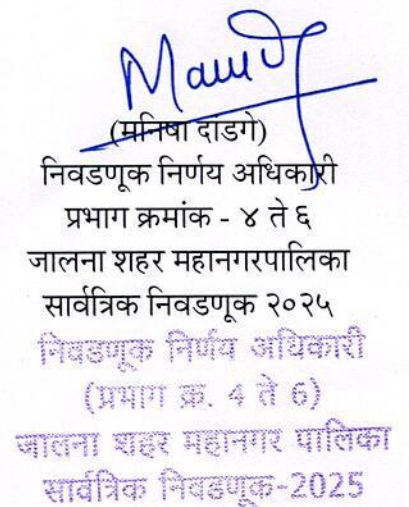 (मनिषा दांडगे)
निवडणूक निर्णय अधिकारी
प्रभाग क्रमांक - ४ ते ६
जालना शहर महानगरपालिका
सार्वत्रिक निवडणूक २०२५
निवडणूक निर्णय अधिकारी
(प्रभाग क्र. 4 ते 6)
जालना शहर महानगर पालिका
सार्वत्रिक निवडणूक-2025